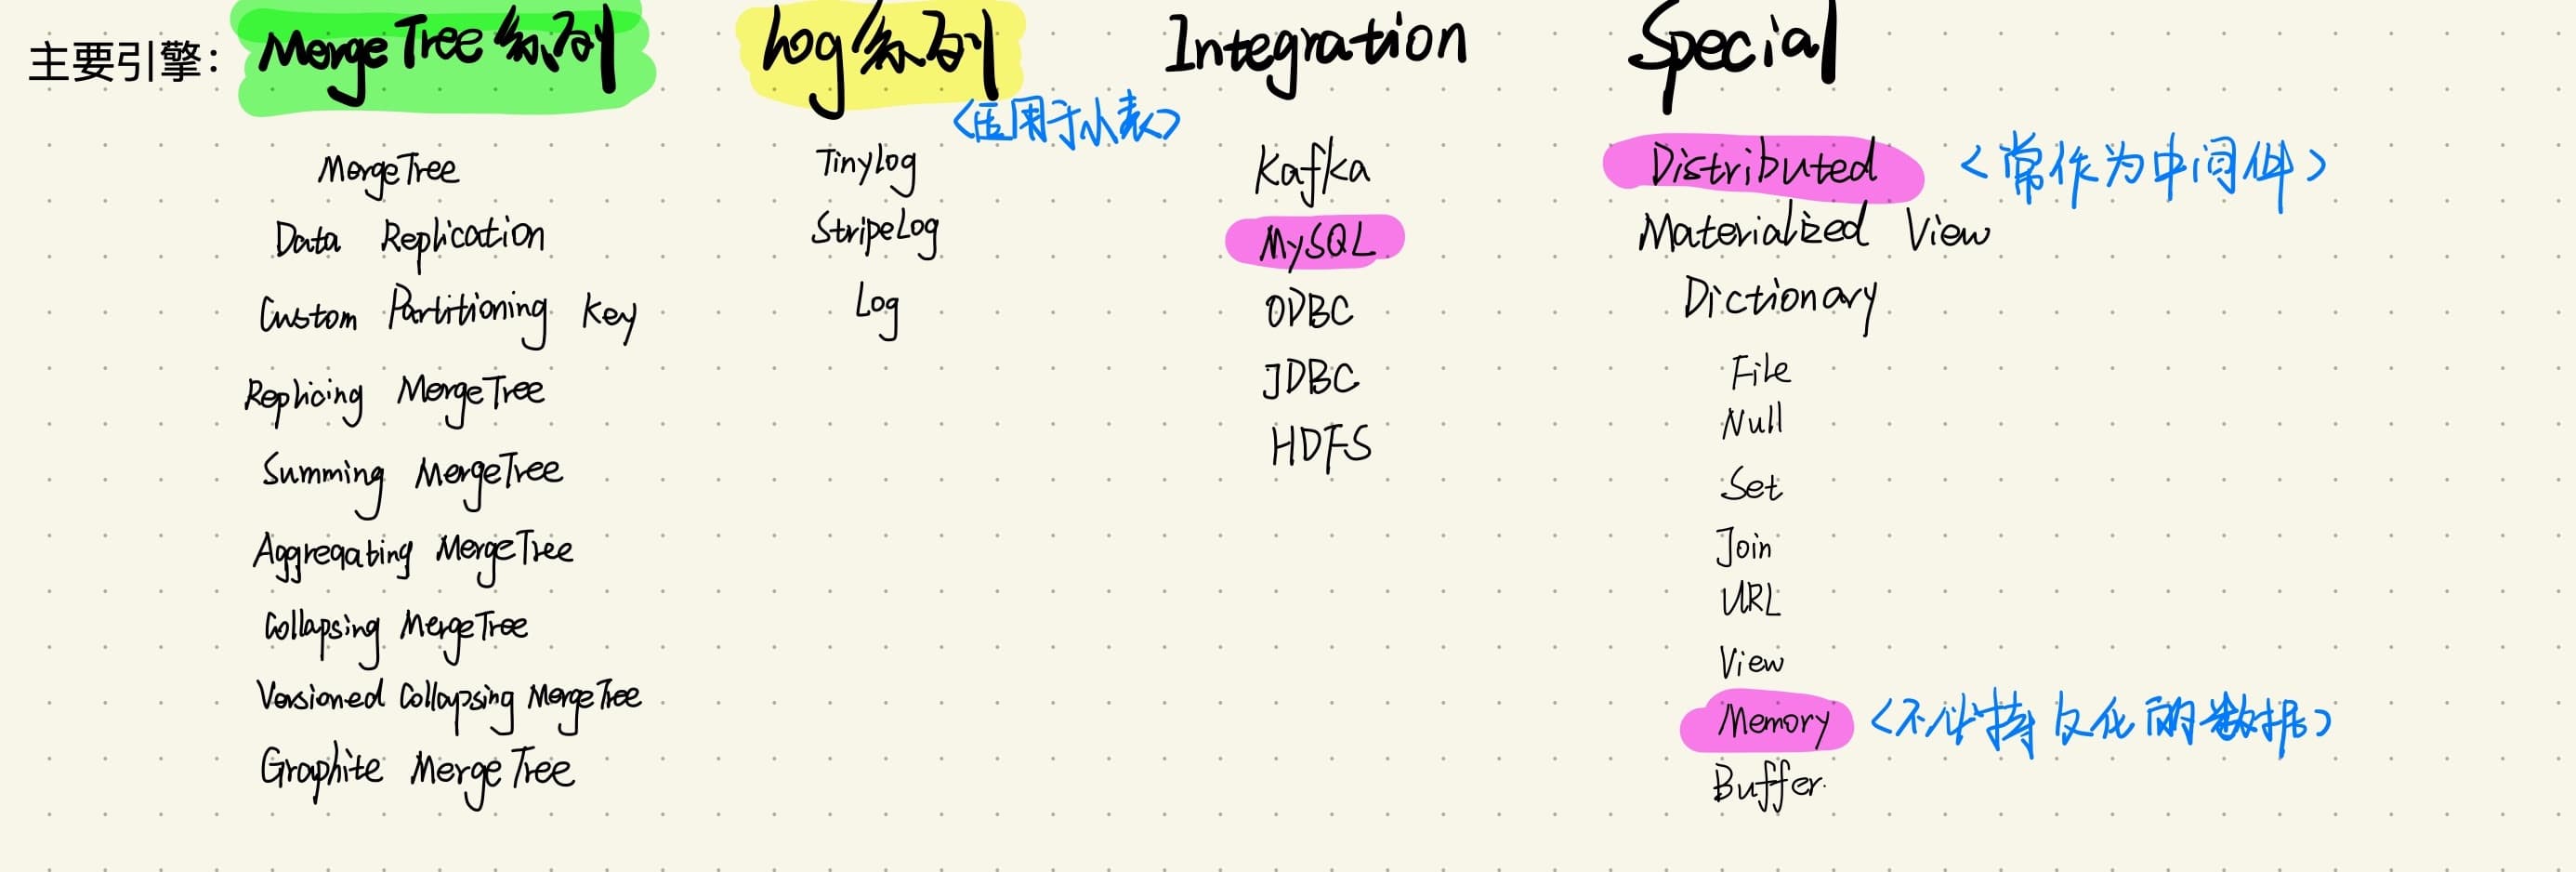 主要引擎：
MergeTree系列
MergeTree
Data Replication
Custom Partitioning Key
Replicing MergeTree
Summing MergeTree
Aggregating MergeTree
Collapsing MergeTree
Versioned Collapsing MergeTree
Graphite MergeTree
Log系列
<适用于小表>
TinyLog
StripeLog
Log
Integration
Kafka
MySQL
ODBC
JDBC
HDFS
Special
Distributed <常作为中间件>
Materialized View
Dictionary
File
Null
Set
Join
URL
View
Memory <不 持 化的数据>
Buffer.